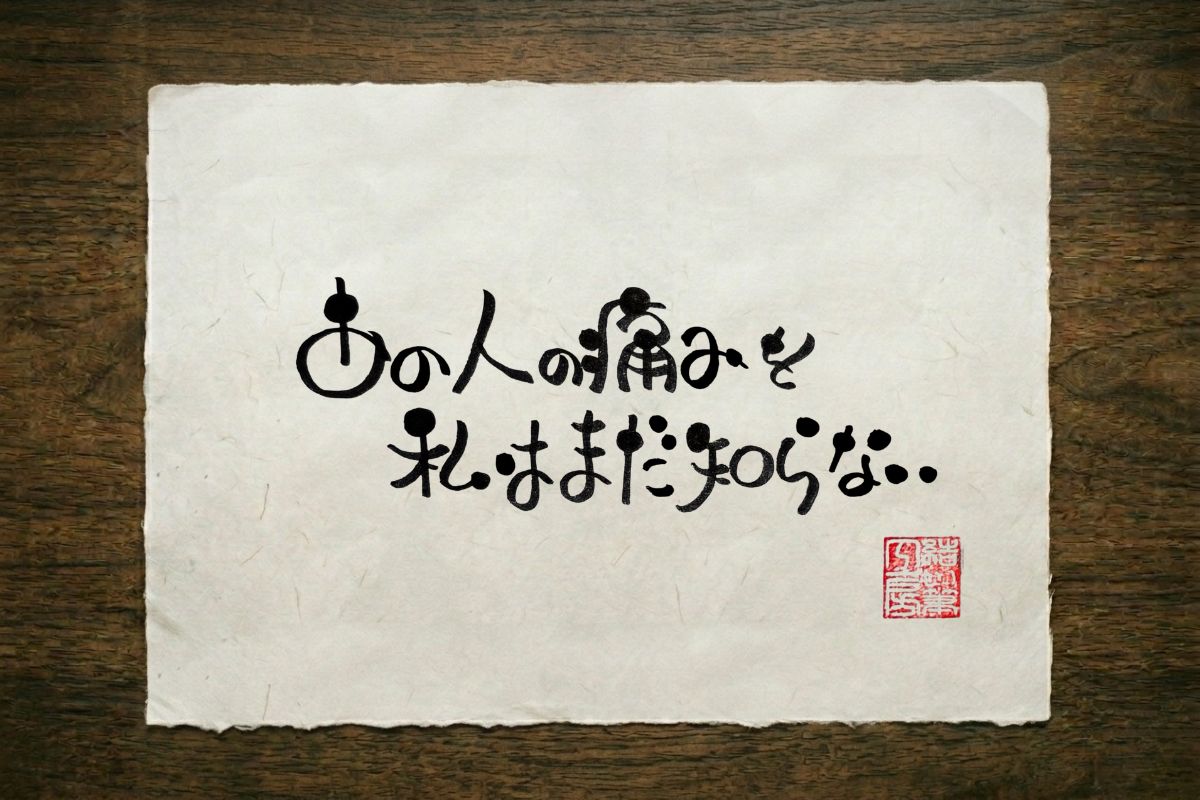 あの人の痛みを
私はまだ知らない